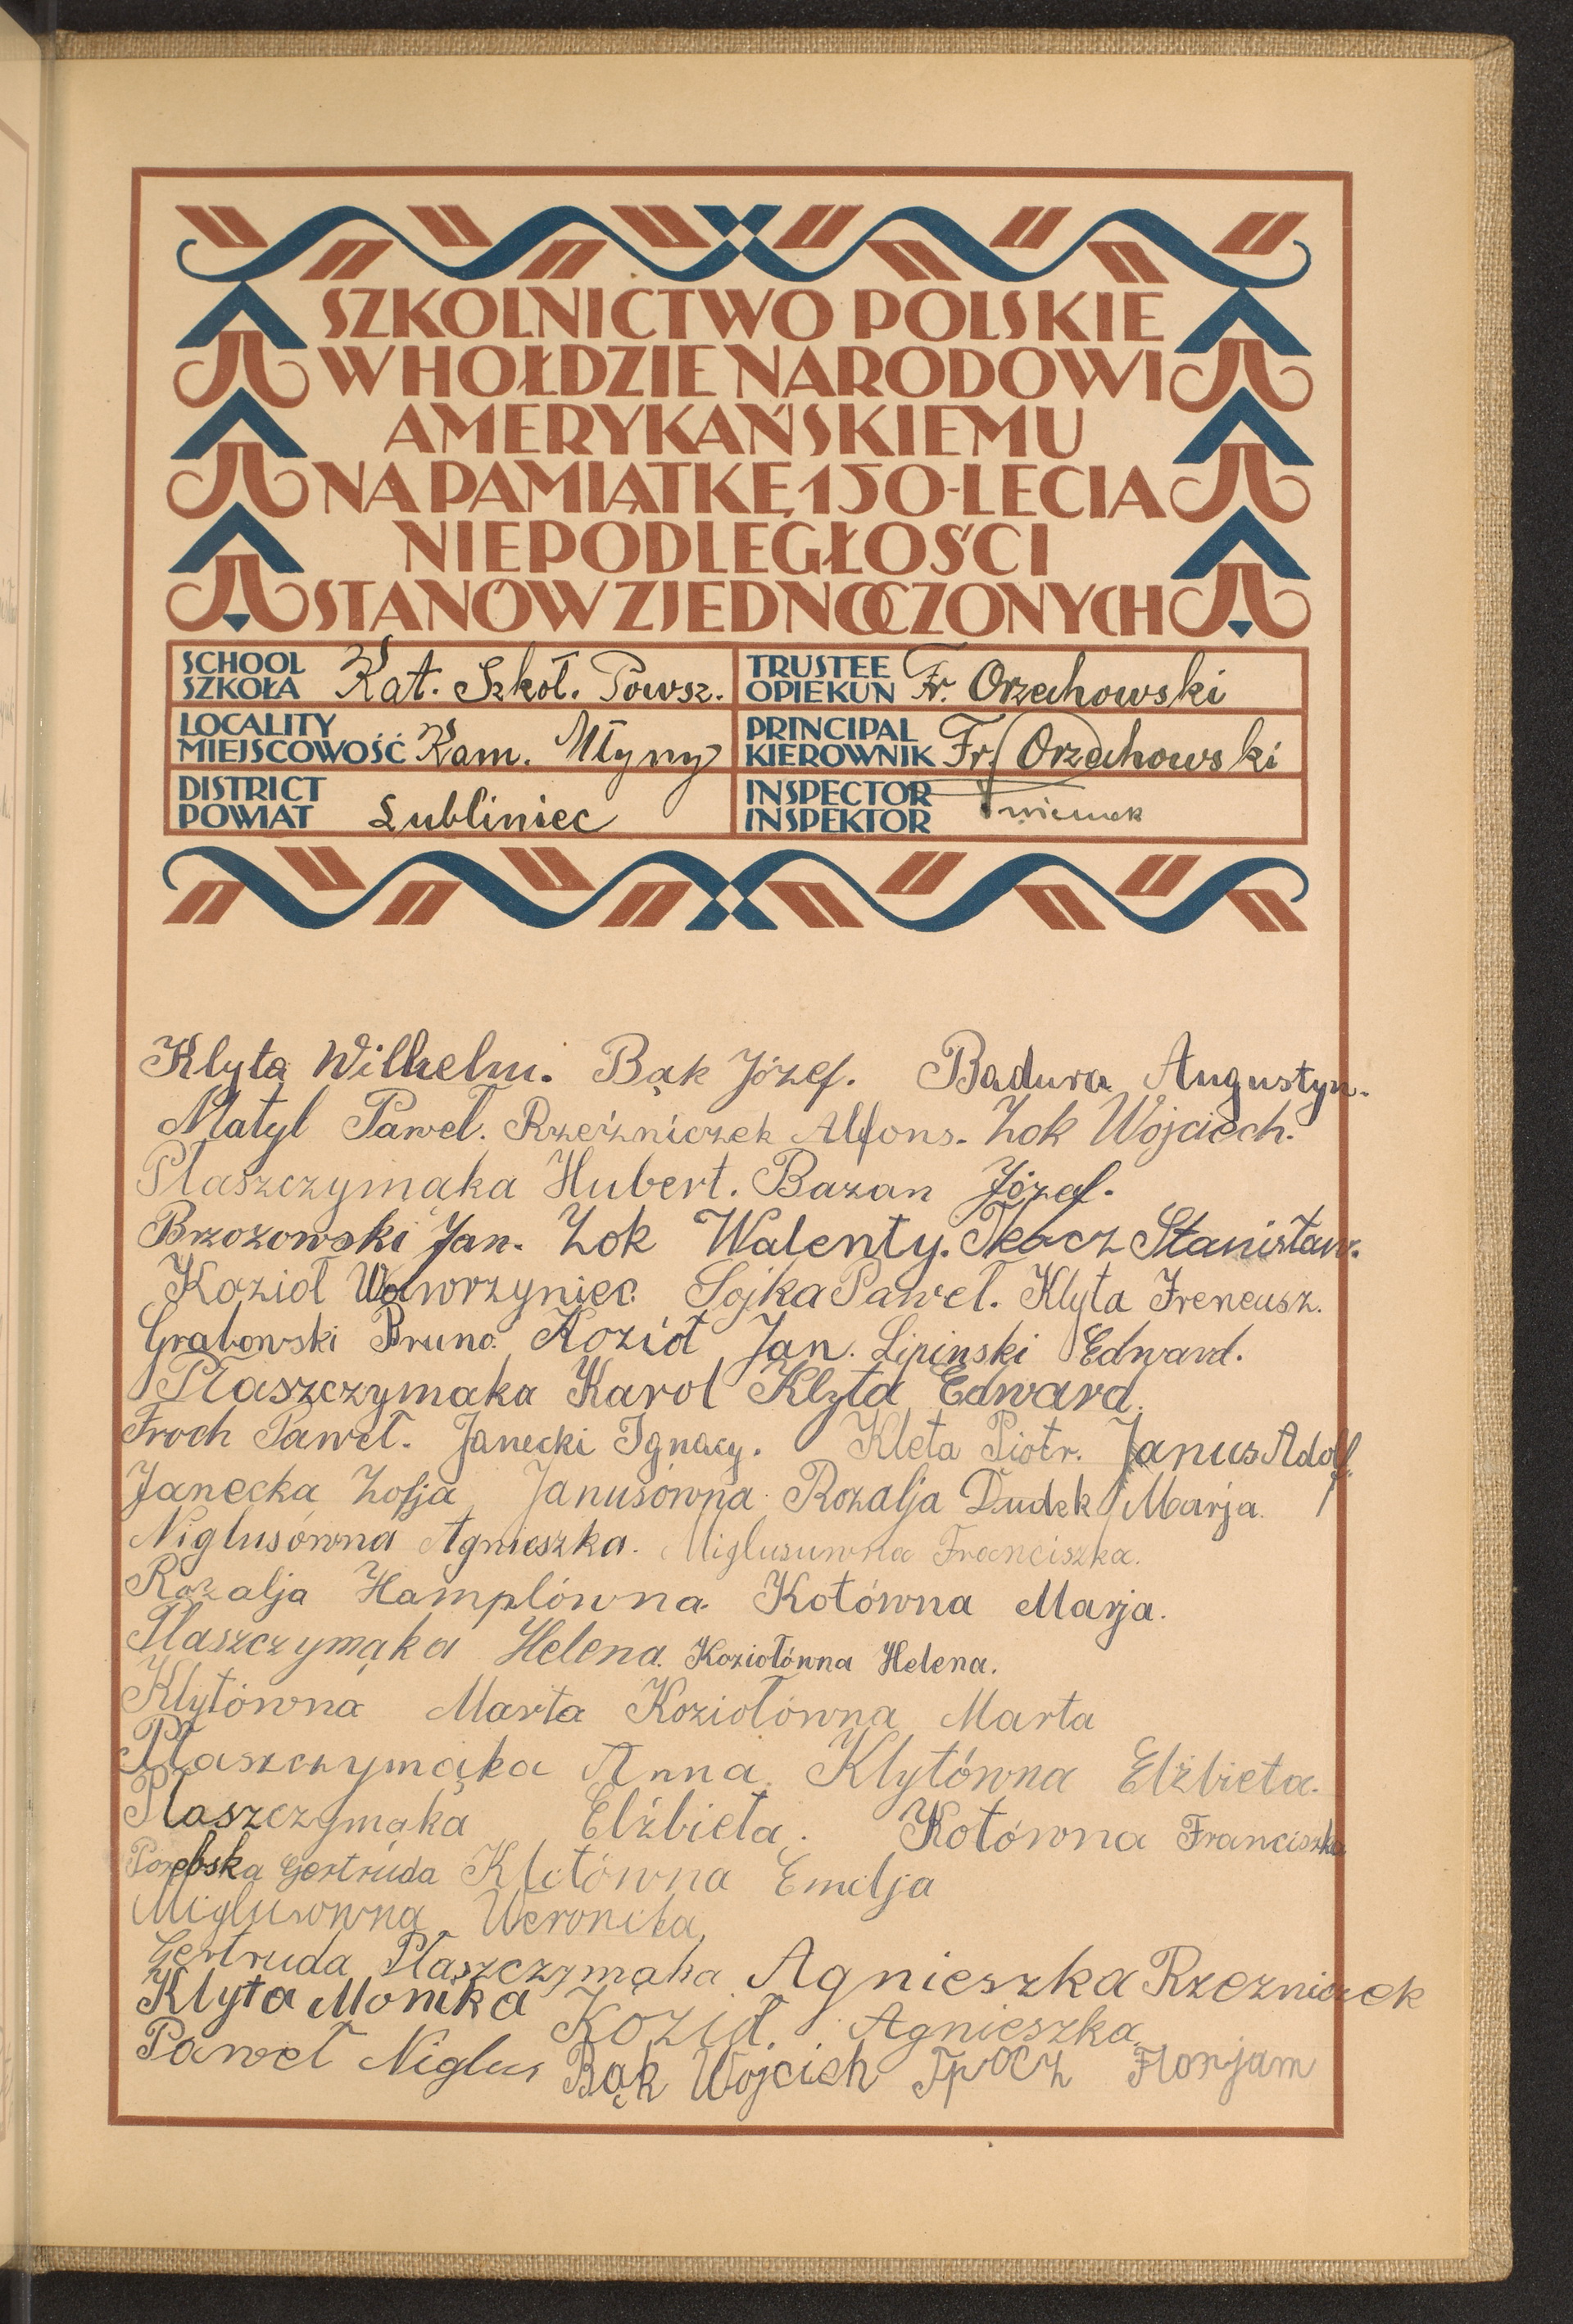 SZKOLNICTWO POLSKIE
W HOŁDZIE NARODOWI
AMERYKAŃSKIEMU
NA PAMIĄTKĘ 150-LECIA
NIEPODLEGŁOŚCI
STANÓW ZJEDNOCZONYCH
SCHOOL SZKOŁA Kat. Szkoł. Powsz. TRUSTEE OPIEKUN Fr. Orzechowski
LOCALITY MIEJSCOWOŚĆ Kam. Młyny PRINCIPAL KIEROWNIK Fr. Orzechowski
DISTRICT POWIAT Lubliniec INSPECTOR INSPEKTOR
Klyta Wilhelm. Bąk Józef. Badura Augustyn.
Matyl Paweł. Rzeźniczek Alfons. Żok Wojciech.
Płaszczymąka Hubert. Bazan Józef.
Brzozowski Jan. Żok Walenty. Tkocz Stanisław.
Kozioł Wawrzyniec. Sojka Paweł. Klyta Ireneusz.
Grabowski Bruno. Kozioł Jan. Lipinski Edward.
Płaszczymaka Karol Klyta Edward.
Froch Paweł. Janecki Ignacy. Kleta Piotr. Janus Adolf.
Janecka Zofja Janusówna Rozalja Dudek Marja.
Niglusówna Agnieszka. Niglusuwna Franciszka.
Rozalja Hamplówna. Kotówna Marja.
Płaszczymąka Helena. Koziołówna Helena.
Klytówna Marta Koziołówna Marta
Płaszczymąka Anna. Klytówna Elżbieta.
Płaszczymąka Elżbieta. Kotówna Franciszka
Porębska Gertruda Kletówna Emelja
Miglusowna Weronika
Gertruda Płaszczymąka Agnieszka Rzezniczek
Klyta Monika Kozioł. Agnieszka
Paweł Niglus Bąk Wojcieh Florjam